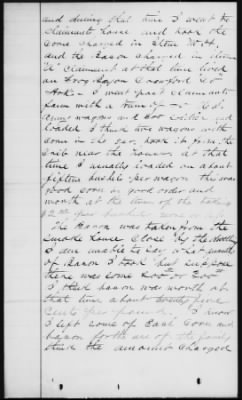 and during that time I went to
claimants house and took the
Corn charged in Item No 4,
and the Bacon charged in Item
claimant at that time lived
on Frog Bayou Crawford Co
Ark - I went past claimants
farm with a train of - U.S.
Army wagons and
loaded I think two wagons with
corn in the ear, took it from the
crib near the house, at that
time I usually loaded in about
fifteen bushels per wagon this was
good corn in good order and
worth at the time of the taking
$2.00 per bushel
The Bacon was taken from the
Smoke House Close by the
I am unable to say what amount
of Bacon I took but suppose
there was some 200 or 300 lbs
I think bacon was worth at
that time about twenty five
Cents per pound I know
I left some of Each Corn and
bacon for the use of the family
think the amount charged